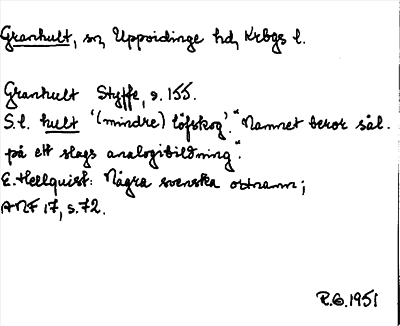 Granhult, sn, Uppvidinge hd, Krbgs l.
Granhult Styffe, s. 155.
S.l. hult '(mindre) löfskog'. "Namnet beror sål.
på ett slags analogibildning".
E. Hellquist: Några svenska ortnamn;
ANF 17, s. 72.
R.G. 1951